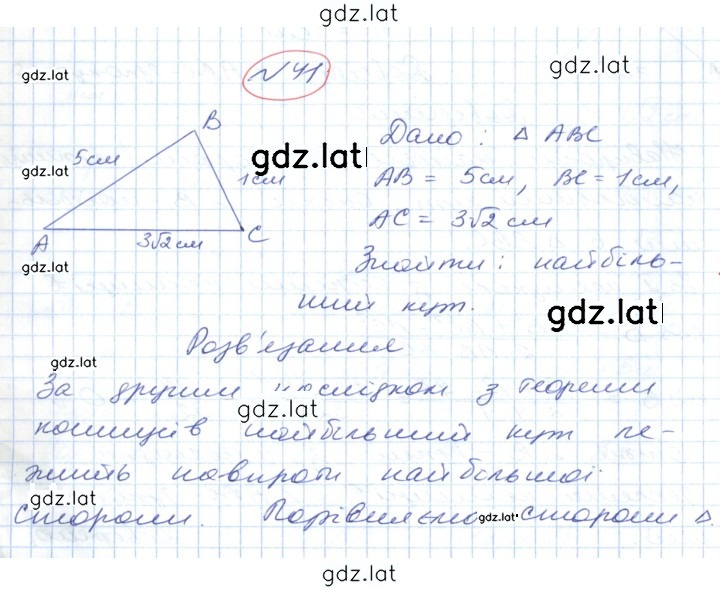 gdz.lat
gdz.lat
№ 41
gdz.lat
B
5см
gdz.lat
gdz.lat
1см
A
3√2 см
C
gdz.lat
Дано : △ ABC
AB = 5см, BC = 1см,
AC = 3√2 см
Знайти : найбіль-
ший кут.
gdz.lat
Розв'язання
gdz.lat
За другим наслідком з теореми
gdz.lat
косинусів найбільший кут ле-
жить навпроти найбільшої
gdz.lat
сторони. Порівняємо сторони △.
gdz.lat
gdz.lat